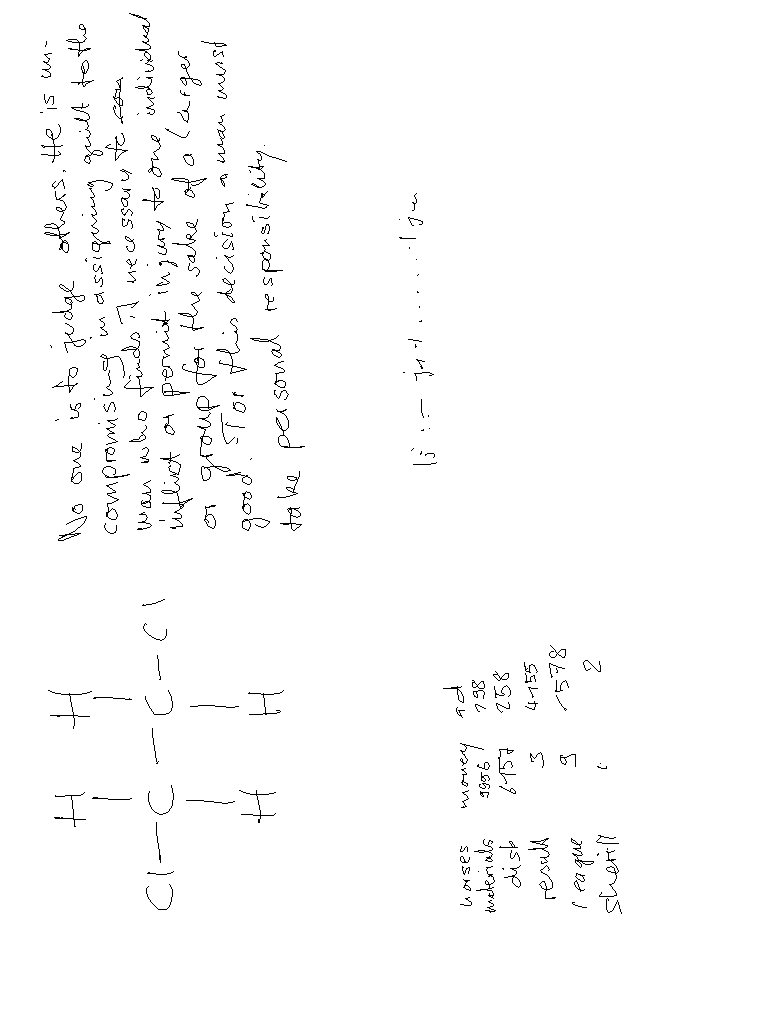 No one is to judge others. He is un-
compromising in assigning guilt to the
man who finds it necessary to
inflict or permit injury to one individual
or group for the sake of a larger
good. For this decision a man must
take personal responsibility.
H H
Cl — C — C — Cl
H H
horses money rd
materials 9996 198
dist 6457 258
result 3 4155
league 9 1578
sheriff 2